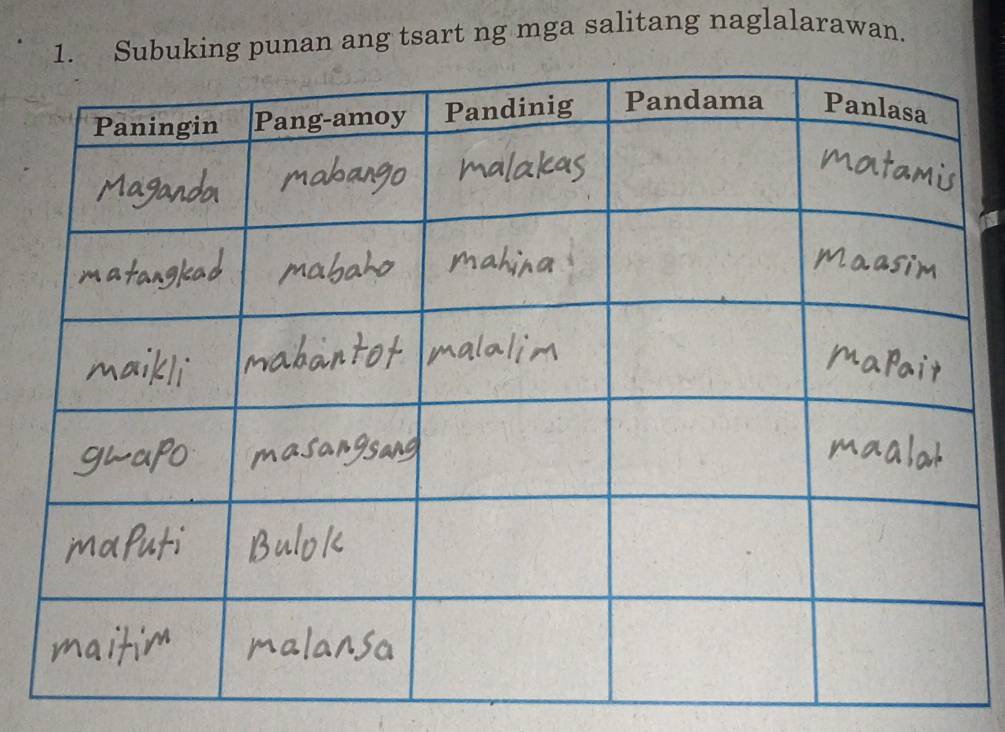 1. Subuking punan ang tsart ng mga salitang naglalarawan.
Paningin Pang-amoy Pandinig Pandama Panlasa
Maganda mabango malakas matamis
matangkad mabaho mahina maasim
maikli mabantot malalim mapait
gwapo masangsang maalat
maputi Bulok
maitim malansa